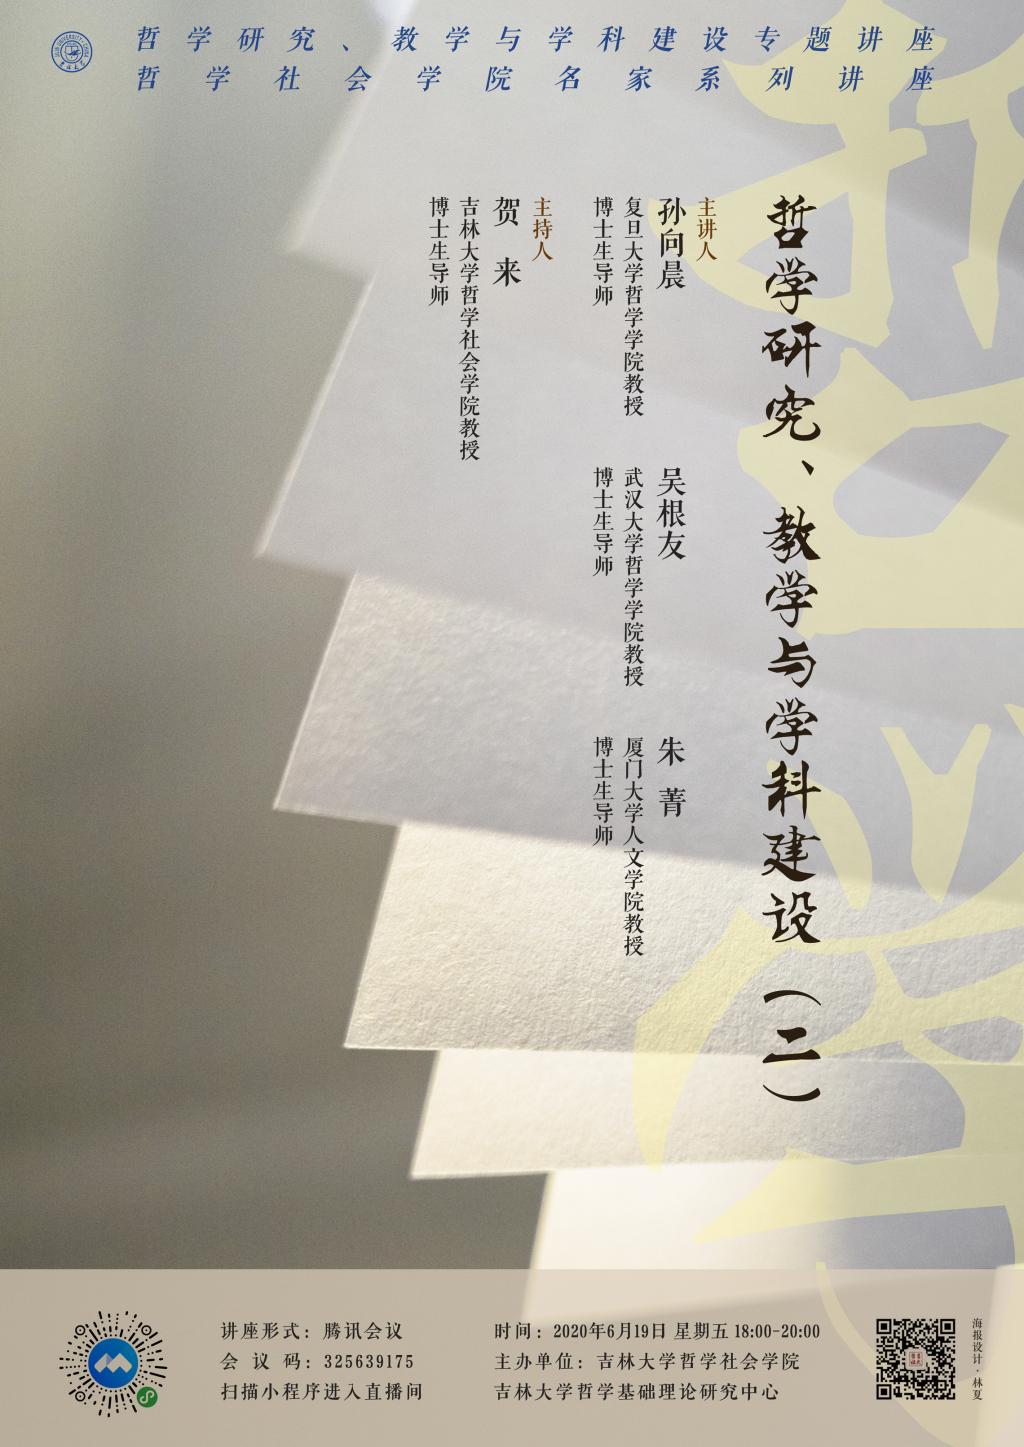 哲学研究、教学与学科建设专题讲座
哲学社会学院名家系列讲座
哲学研究、教学与学科建设（二）
主讲人
孙向晨
复旦大学哲学学院教授
博士生导师
吴根友
武汉大学哲学学院教授
博士生导师
朱菁
厦门大学人文学院教授
博士生导师
主持人
贺来
吉林大学哲学社会学院教授
博士生导师
哲学
讲座形式：腾讯会议
会议码：325639175
扫描小程序进入直播间
时间：2020年6月19日 星期五 18:00-20:00
主办单位：吉林大学哲学社会学院
吉林大学哲学基础理论研究中心
海报设计·林夏